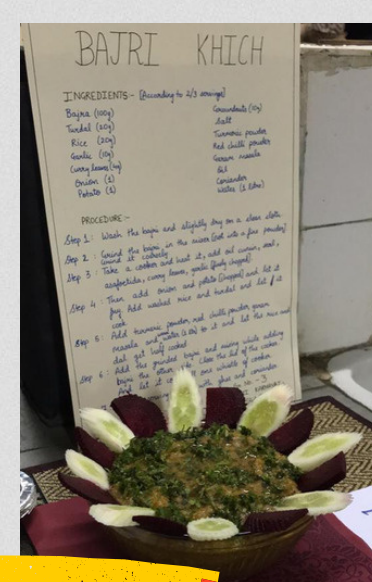 BAJRI KHICH
INGREDIENTS:- [According to 2/3 servings]
Bajra (100g)
Turdal (20g)
Rice (20g)
Garlic (10g)
Curry leaves (4g)
Onion (1)
Potato (1)
Groundnuts (10g)
Salt
Turmeric powder
Red chilli powder
Garam masala
Oil
Coriander
Water (1 litre)
PROCEDURE:-
Step 1: Wash the bajri and slightly dry on a clean cloth
Step 2: Grind the bajri, in the mixer [not into a fine powder]
Grind it coarsely
Step 3: Take a cooker and heat it, add oil cumin,
asafoetida, curry leaves, garlic [finely chopped].
Step 4: Then add onion and potato [chopped] and let it
fry. Add washed rice and turdal and let it
cook
Step 5: Add turmeric powder, red chilli powder, garam
masala and water to it and let the rice and
dal get half cooked
Step 6: Add the grinded bajri and mixing while adding
bajri the Close the lid of the cooker
And let it whistle of cooker
with ghee and coriander
NO. - 3